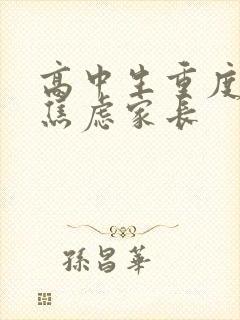 高中生重度
焦虑家长
孫昌華